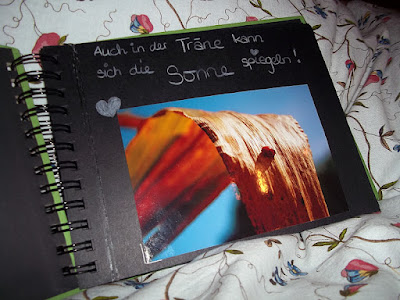 Auch in der Träne kann
sich die Sonne spiegeln!